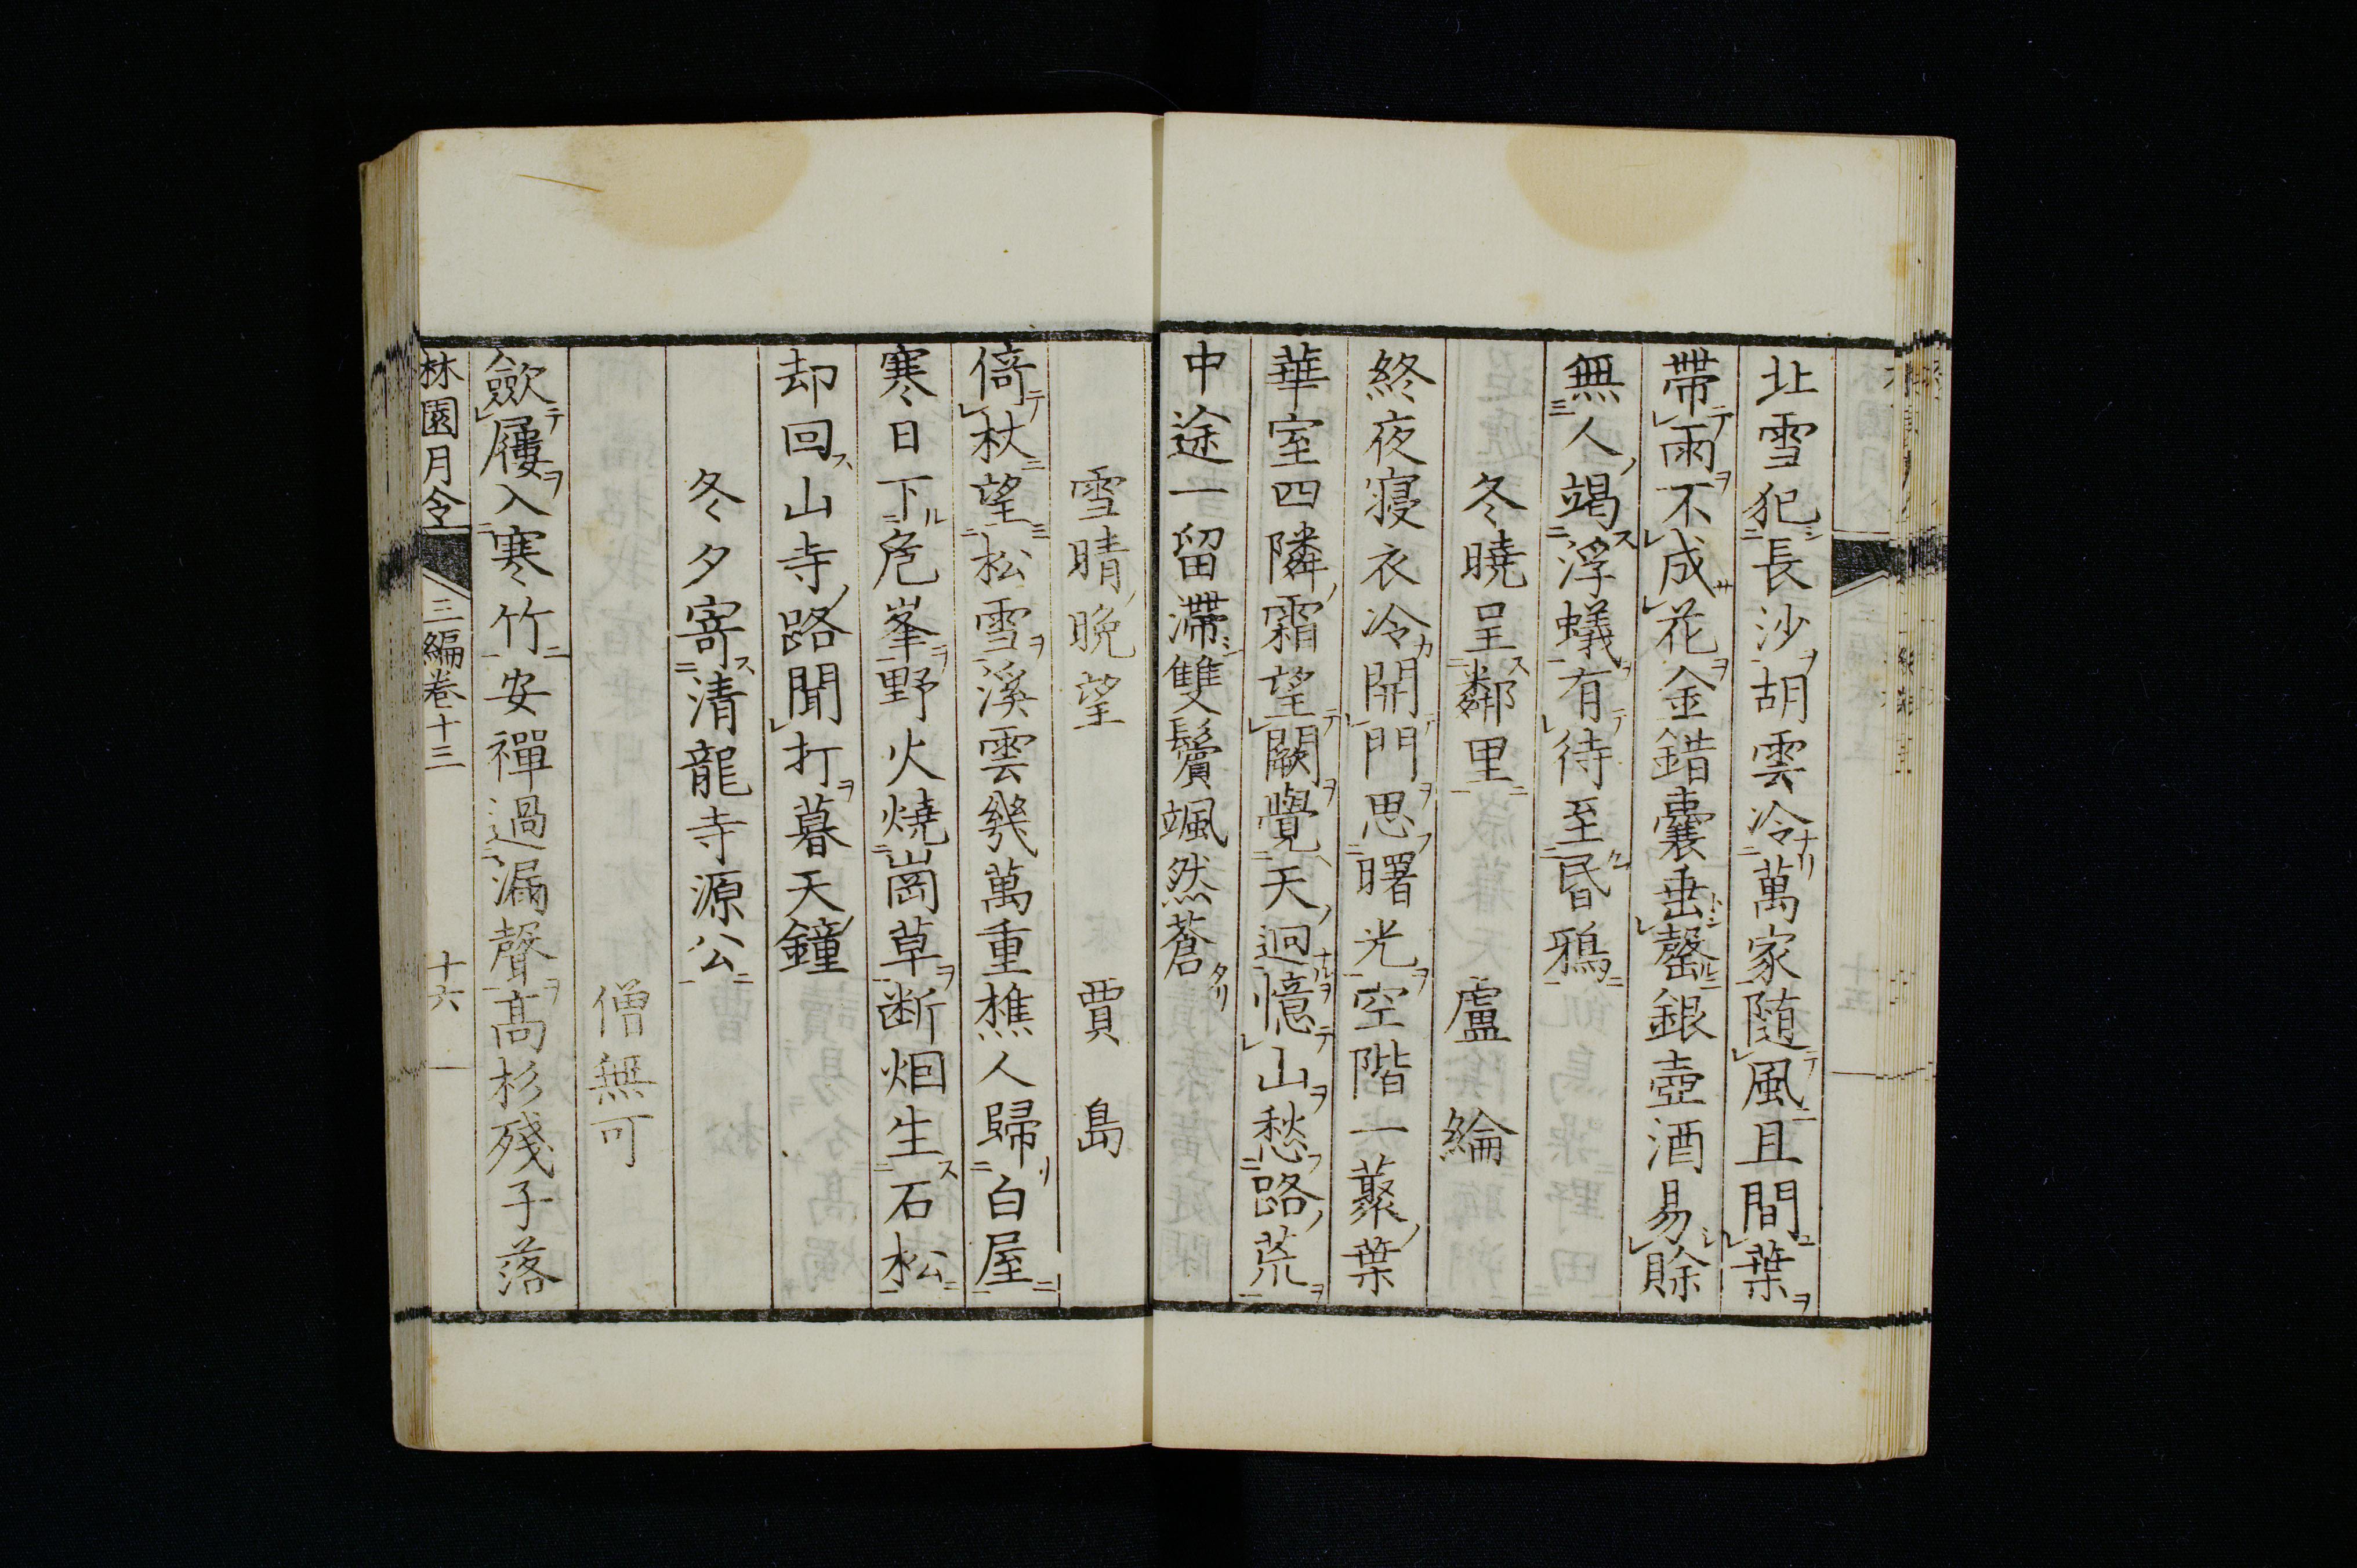 北雪犯長沙胡雲冷萬家随風且間葉
帶雨不成花金錯囊垂罄銀壺酒易賖
無人竭浮蟻有待至昏鴉
冬曉呈鄰里　盧綸
終夜寝衣冷開門思曙光空階一藂葉
華室四隣霜望闕覺天迥憶山愁路荒
中途一留滯雙鬢颯然蒼
雪晴晩望　賈島
倚杖望松雪溪雲幾萬重樵人歸白屋
寒日下危峯野火燒崗草断烟生石松
却回山寺路聞打暮天鐘
冬夕寄清龍寺源公
僧無可
歛屨入寒竹安禪過漏聲髙杉殘子落
林園月令　三編卷十三　十六